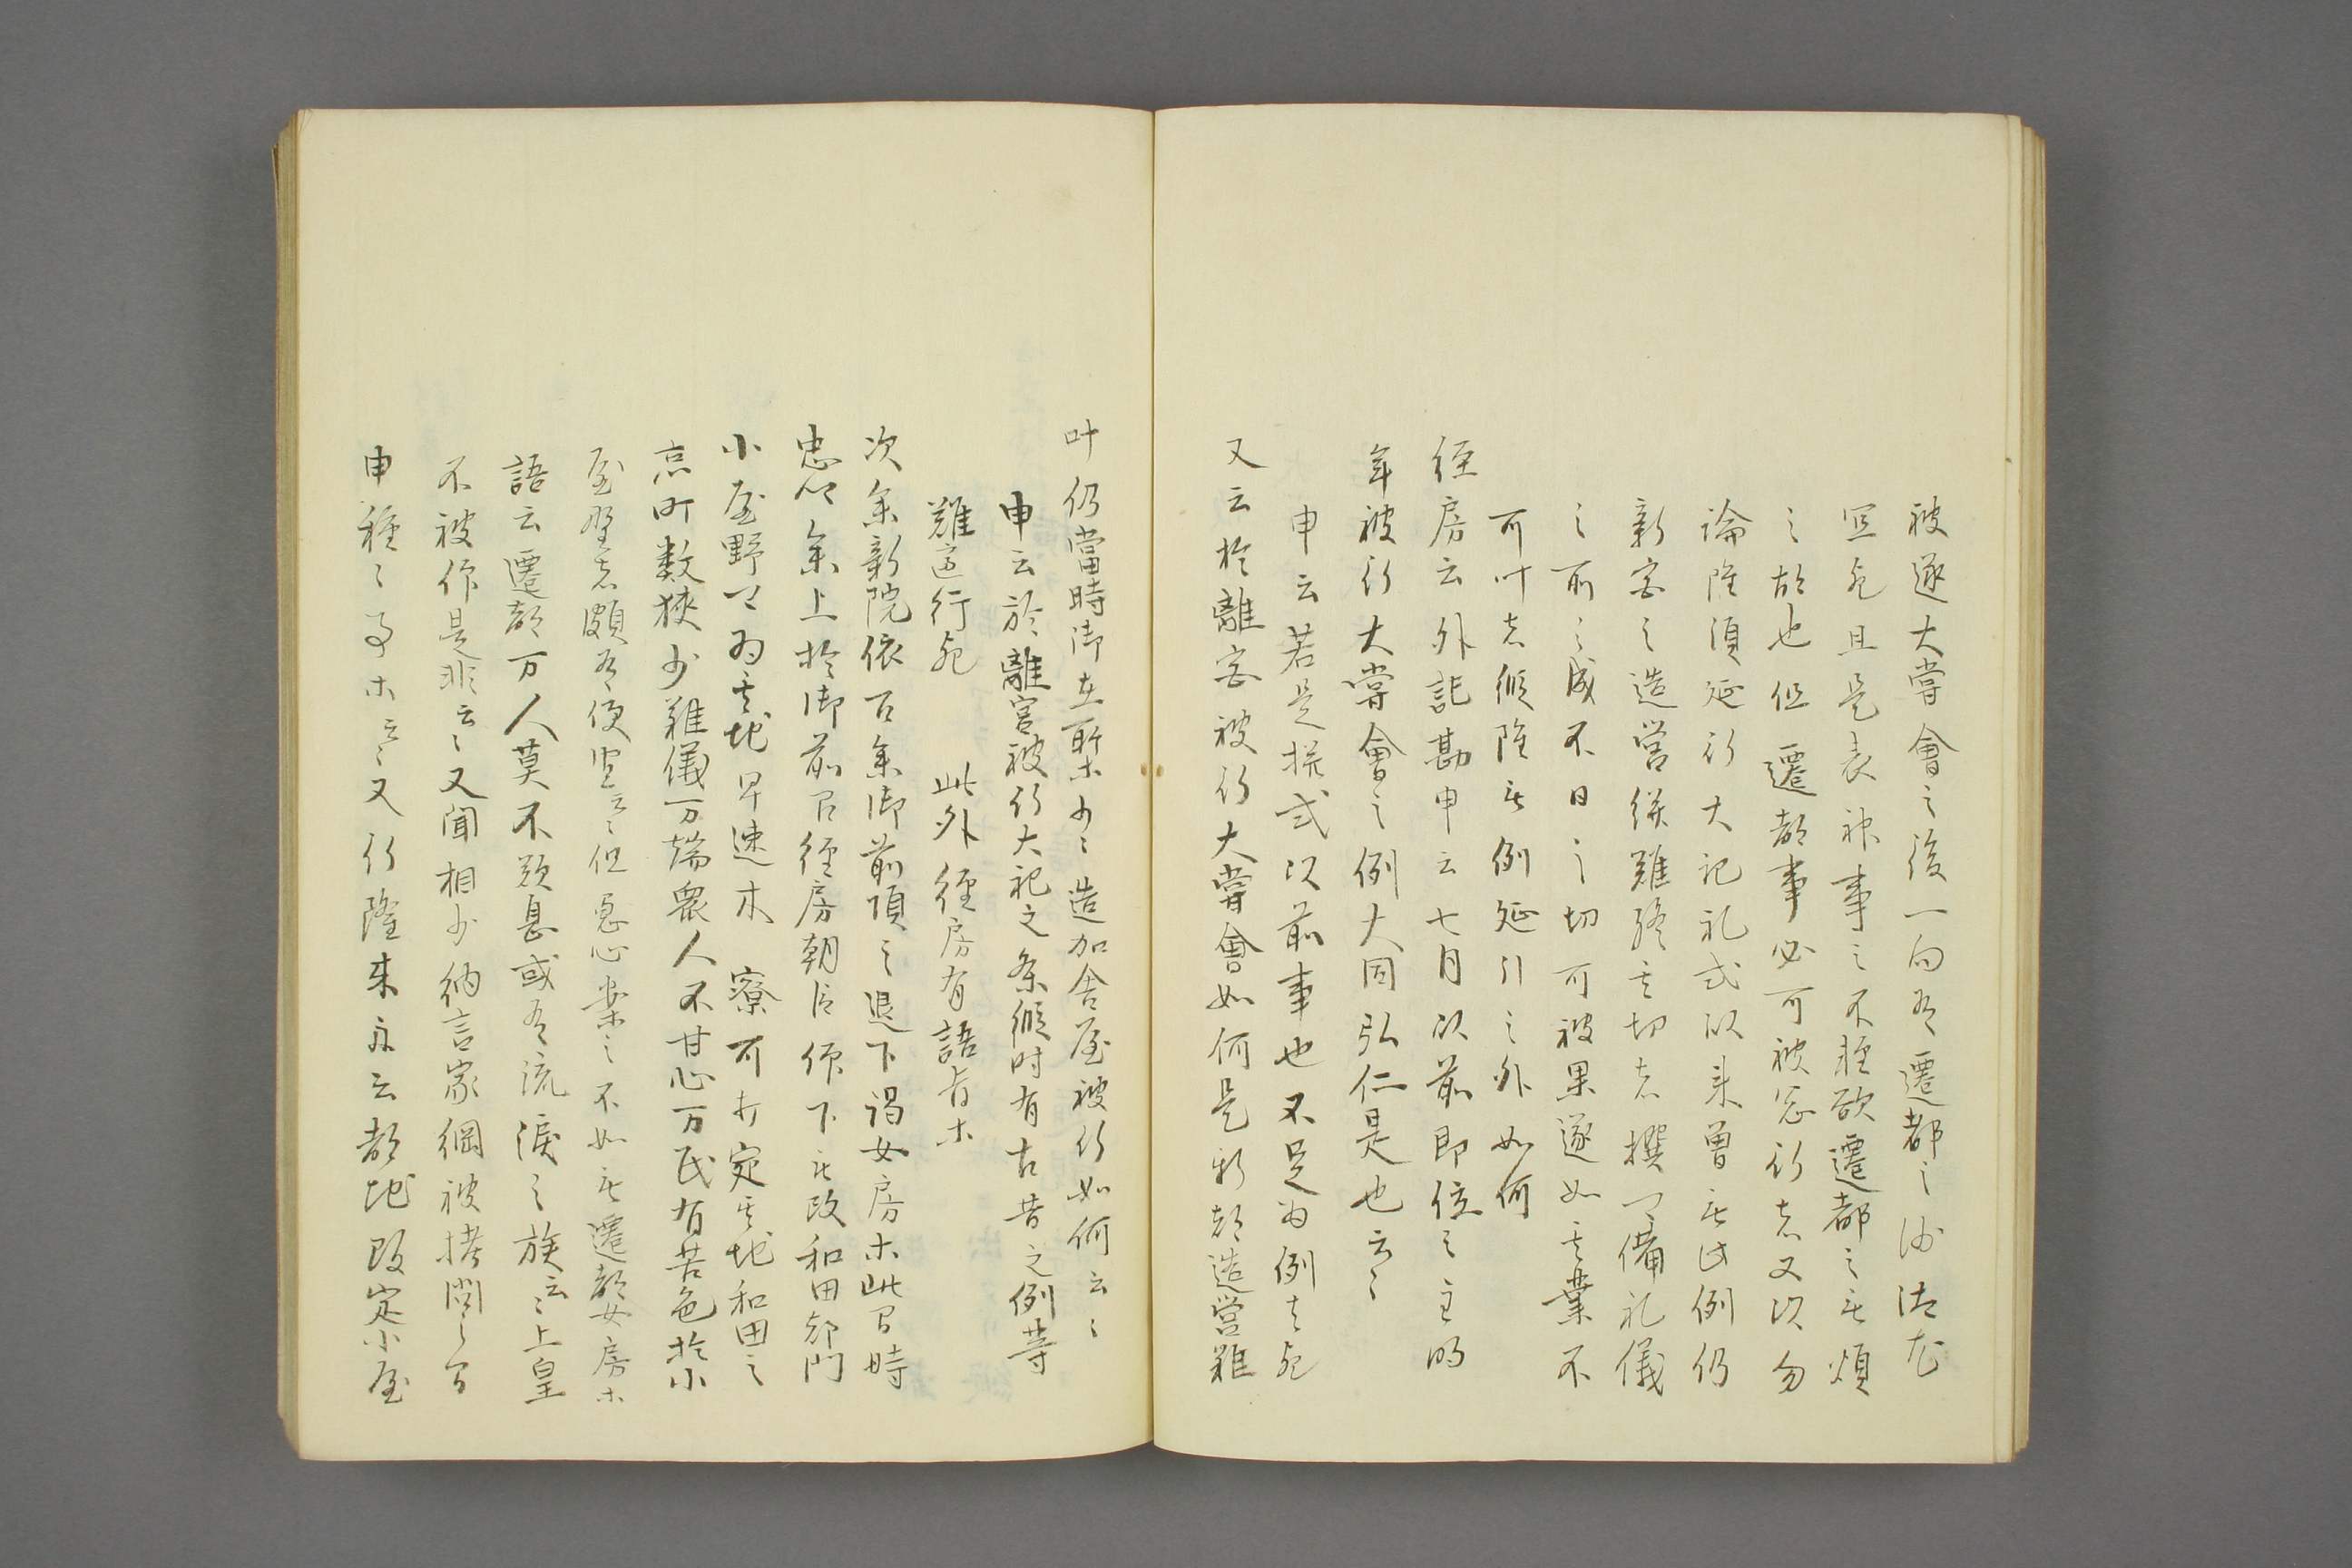 被遂大嘗會之後一向有遷都之沙汰尤
宜歟且是表神事之不軽欲遷都之無煩
之故也但遷都事必可被忩行者又以勿
論雖須延行大祀礼式以来曽無此例仍
新宮之造営縦雖終其切者撰一備礼儀
之所之成不日之切可被果遂如其葉不
可叶者縦雖無例延引之外如何
経房云外記勘申云七月以前即位之主明
年被行大嘗會之例大同弘仁是也云々
申云若是撰式以前事也不足為例者歟
又云於離宮被行大嘗會如何是新都造営難
叶仍當時御在所半少々造加舎屋被行如何云々
申云於離宮被行大祀之条縦时有古昔之例等
難適行歟　此外経房有語旨木
次参新院依召参御前頃之退下謁女房木此間時
忠卿参上於御前召経房朝臣仰下無改和田都門
小屋野一為其地早速木寮可打定其地和田之
京町数狭少難儀万端衆人不甘心万民有苦色於小
屋野者頗有便宜云々但愚心案之不如無遷都女房木
語云遷都万人莫不歎息或有流涙之族云々上皇
不被仰是非云々又聞相少納言宗綱被拷問之間
申種々事木云々又行隆来亦云都地改定小屋